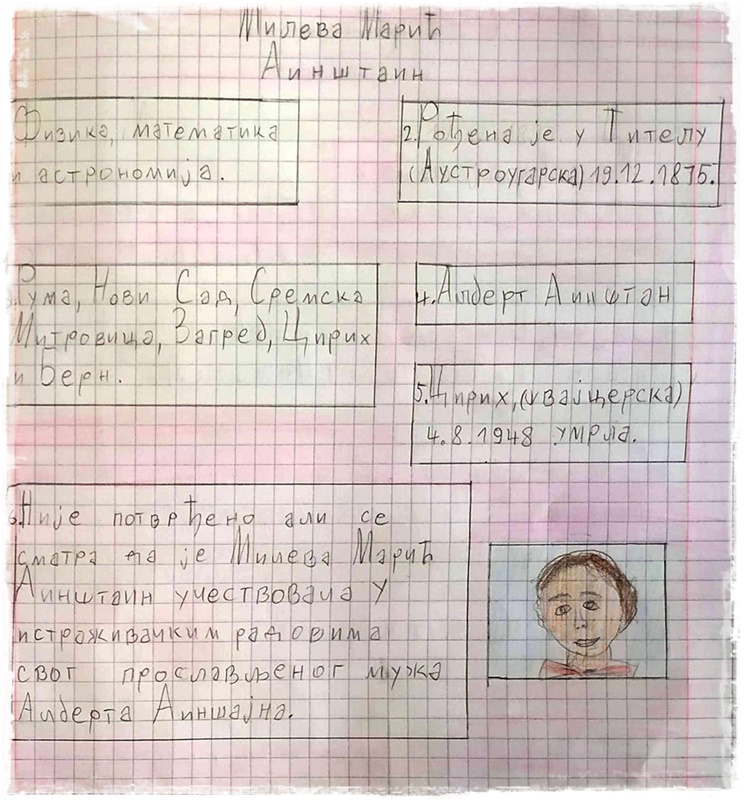 Милева Марић
Аинштаин
Физика, математика
и астрономија.
2. Рођена је у Тителу
(Аустроугарска) 19.12.1875.
Рума, Нови Сад, Сремска
Митровица, Загреб, Цирих
и Берн.
4. Алберт Аинштан
5. Цирих, (швајцерска)
4.8.1948 умрла.
6. Није потврђено али се
сматра да је Милева Марић
Аинштаин учествовала у
истраживачким радовима
свог прослављеног мужа
Алберта Аиншајна.